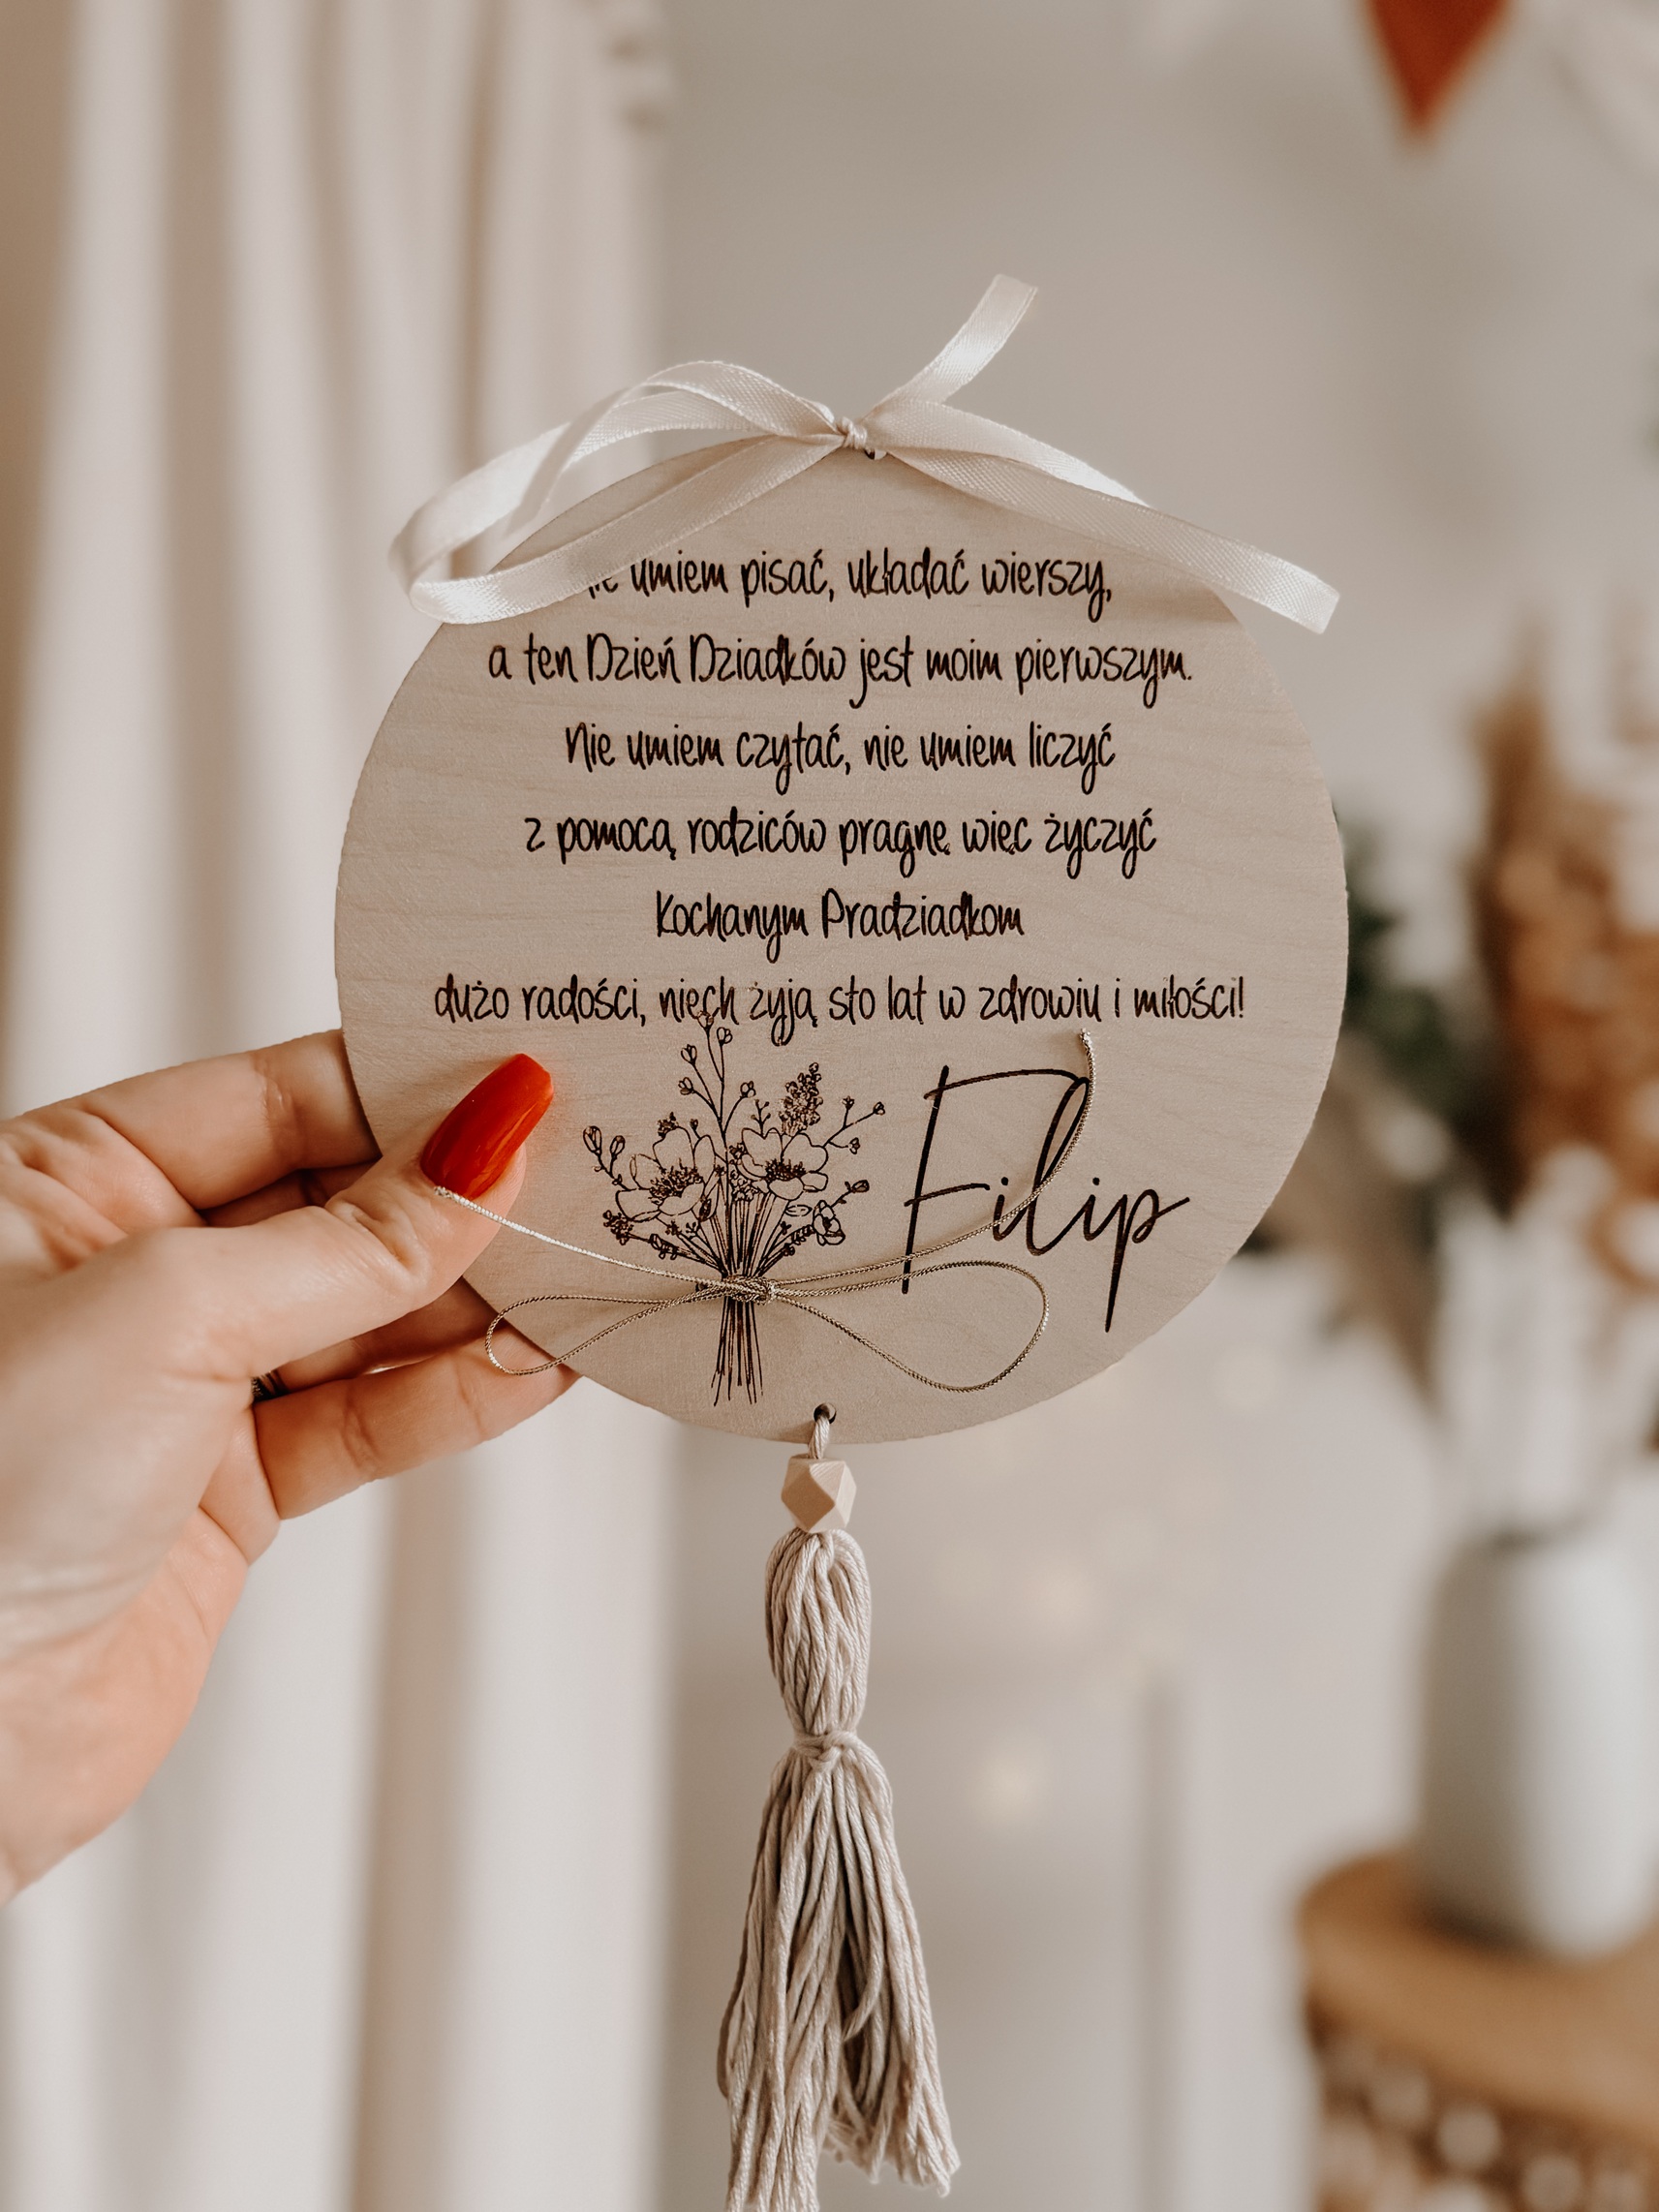 umiem pisać, układać wierszy,
a ten Dzień Dziadków jest moim pierwszym.
Nie umiem czytać, nie umiem liczyć
z pomocą rodziców pragnę więc życzyć
Kochanym Pradziadkom
dużo radości, niech żyją sto lat w zdrowiu i miłości!
Filip